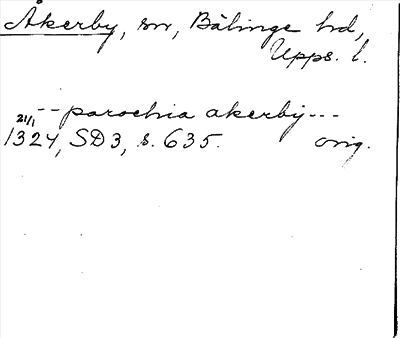 Åkerby, sn, Bälinge hd,
Upps. l.
-- parochia akerbij ---
21/1
1324, SD3, s. 635. orig.